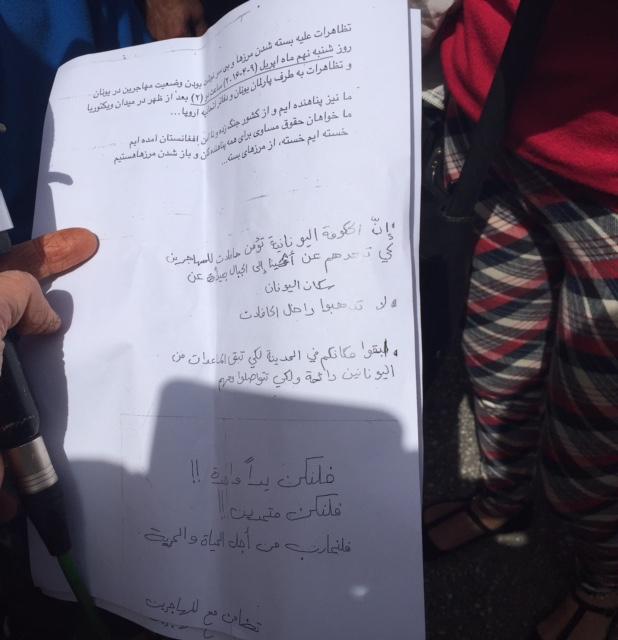 تظاهرات علیه بسته شدن مرزها و بودن وضعیت مهاجرین در یونان
روز شنبه نهم ماه اپریل (۹-۴-۲۰۱۶) (۲) بعد از ظهر در میدان ویکتوریا
و تظاهرات به طرف پارلمان یونان و دفاتر اروپا...
ما نیز پناهنده ایم و از کشور جنگ زده افغانستان آمده ایم
ما خواهان حقوق مساوی برای همه و باز شدن مرزها هستیم
خسته ایم خسته، از مرزهای بسته...
إنّ الحكومة اليونانية تؤمن حافلات للمهاجرين
كي تبعدهم عن إلى الجبال عن
سكان اليونان
لا تذهبوا داخل الحافلات
ابقوا مكانكم في المدينة لكي تبقى المساعدات من
اليونانين دائمة ولكي تتواصلوا معهم
فلنكن يداً واحدة !!
فلنكن متحدين !!
فلنحارب من أجل الحياة و الحرية
تضامن مع المهاجرين